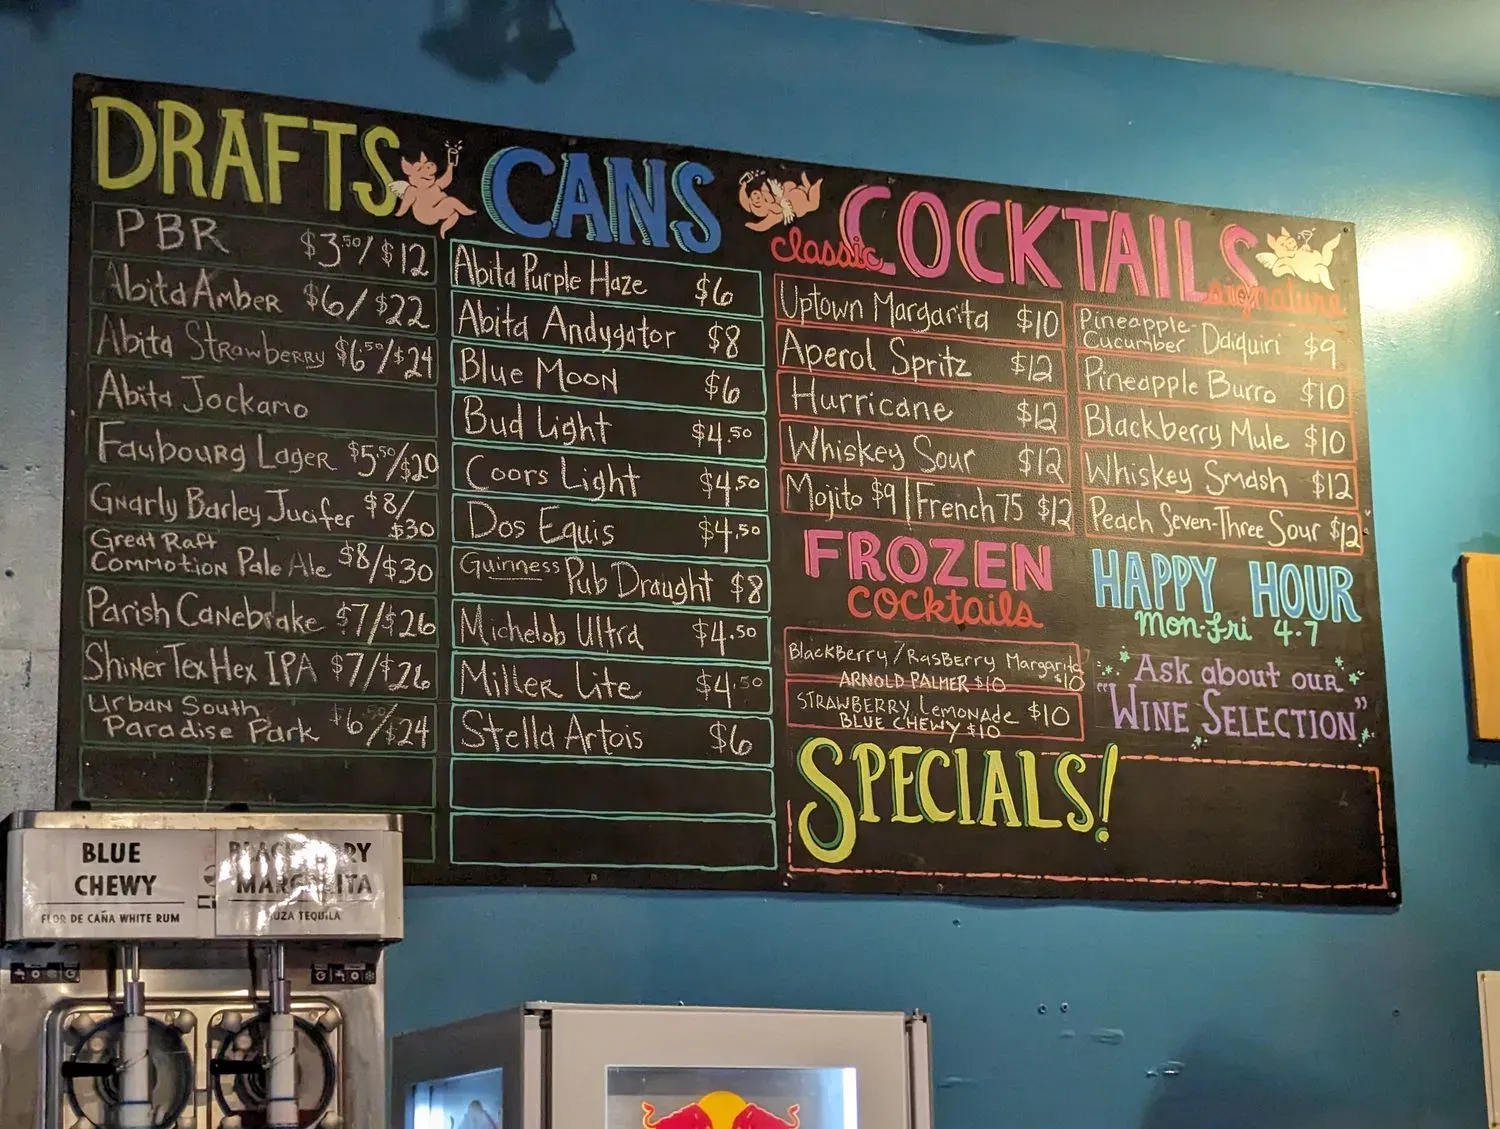 DRAFTS
PBR $3.50/$12
Abita Amber $6/$22
Abita Strawberry $6.50/$24
Abita Jockamo
Faubourg Lager $5.50/$20
Gnarly Barley Jucifer $8/
$30
Great Raft
Commotion Pale Ale $8/$30
Parish Canebrake $7/$26
Shiner Tex Hex IPA $7/$26
Urban South
Paradise Park $6.50/$24
CANS
Abita Purple Haze $6
Abita Andygator $8
Blue Moon $6
Bud Light $4.50
Coors Light $4.50
Dos Equis $4.50
Guinness Pub Draught $8
Michelob Ultra $4.50
Miller Lite $4.50
Stella Artois $6
COCKTAILS
classic
Uptown Margarita $10
Aperol Spritz $12
Hurricane $12
Whiskey Sour $12
Mojito $9 | French 75 $12
signature
Pineapple-
Cucumber Daiquiri $9
Pineapple Burro $10
Blackberry Mule $10
Whiskey Smash $12
Peach Seven-Three Sour $12
FROZEN
cocktails
BlackBerry/RasBerry Margarita
$10
ARNOLD PALMER $10
STRAWBERRY Lemonade $10
BLUE CHEWY $10
HAPPY HOUR
Mon-Fri 4-7
Ask about our
"WINE SELECTION"
SPECIALS!
BLUE
CHEWY
FLOR DE CAÑA WHITE RUM
MARGARITA
TEQUILA